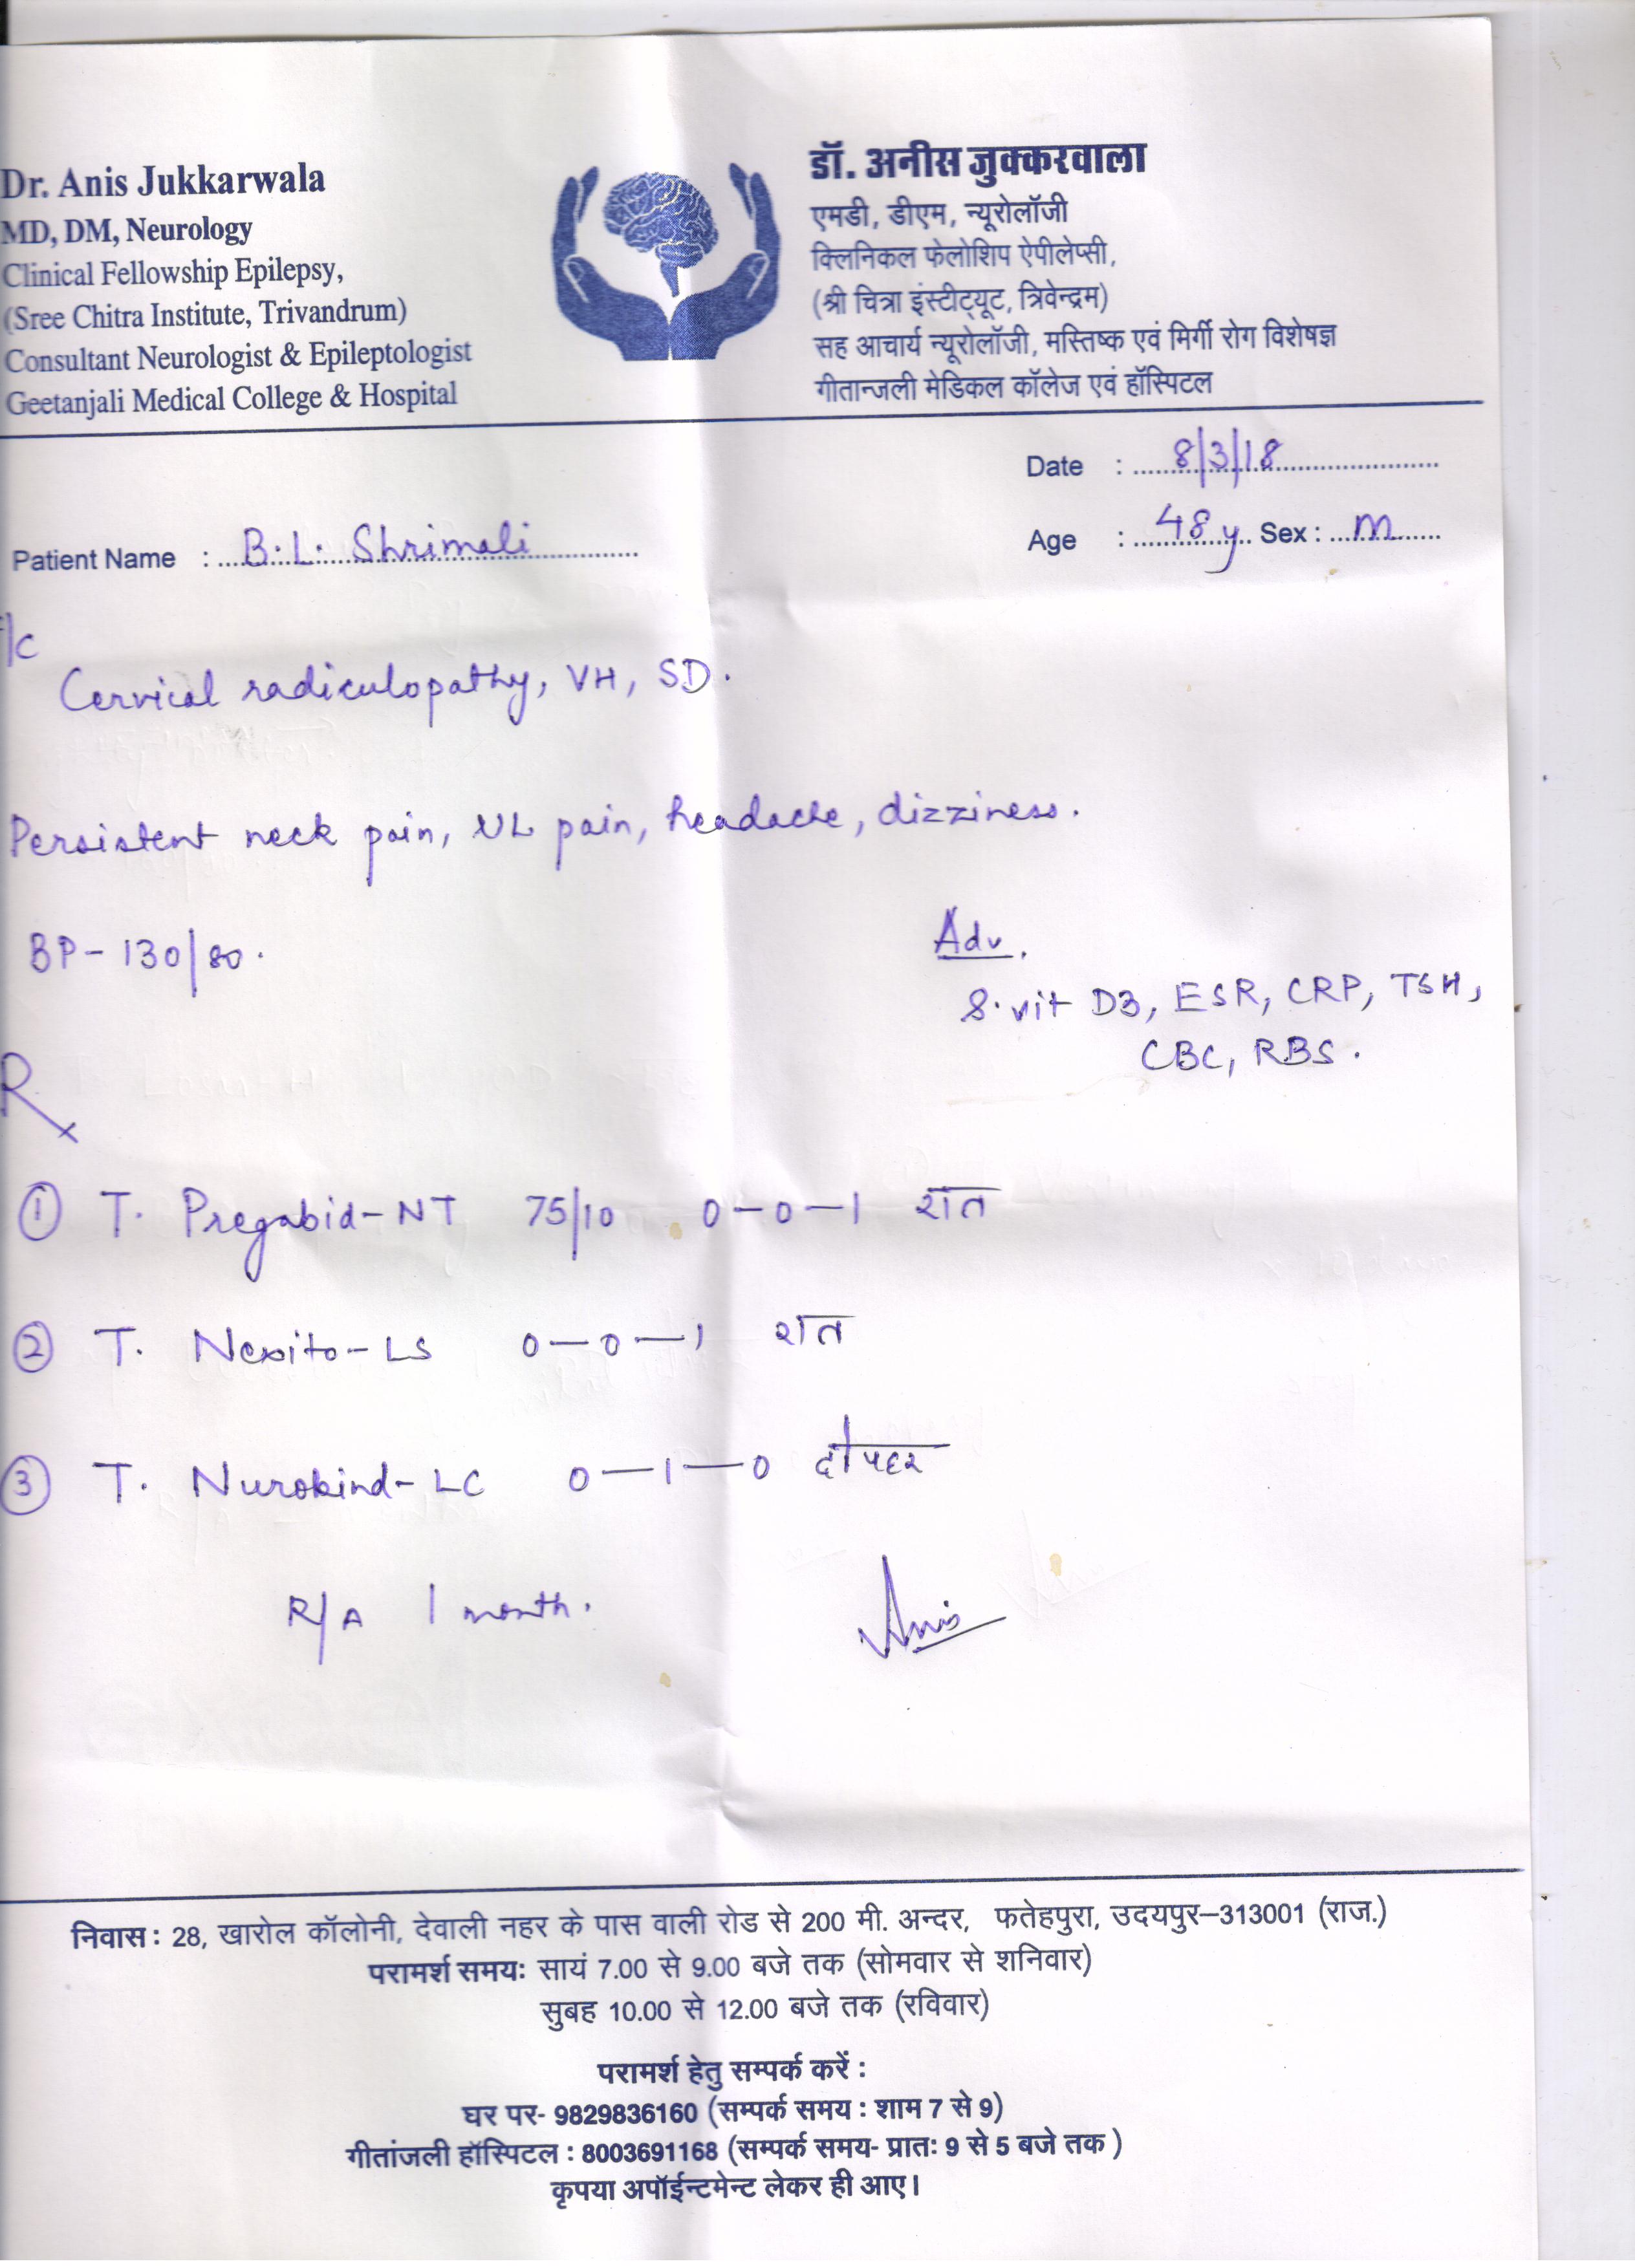 Dr. Anis Jukkarwala
MD, DM, Neurology
Clinical Fellowship Epilepsy,
(Sree Chitra Institute, Trivandrum)
Consultant Neurologist & Epileptologist
Geetanjali Medical College & Hospital
डॉ. अनीस जुक्करवाला
एमडी, डीएम, न्यूरोलॉजी
क्लिनिकल फेलोशिप ऐपीलेप्सी,
(श्री चित्रा इंस्टीट्यूट, त्रिवेन्द्रम)
सह आचार्य न्यूरोलॉजी, मस्तिष्क एवं मिर्गी रोग विशेषज्ञ
गीतान्जली मेडिकल कॉलेज एवं हॉस्पिटल
Date : 8/3/18
Patient Name : B.L. Shrimali
Age : 48 y Sex : M
/C
Cervical radiculopathy, VH, SD.
Persistent neck pain, UL pain, headache, dizziness.
BP- 130/80.
Adv.
S. vit D3, ESR, CRP, TSH,
CBC, RBS.
Rx
① T. Pregabid-NT 75/10 0-0-1 रात
② T. Nexito-LS 0-0-1 रात
③ T. Nurokind-LC 0-1-0 दोपहर
R/A 1 month.
Anis
निवास : 28, खारोल कॉलोनी, देवाली नहर के पास वाली रोड से 200 मी. अन्दर, फतेहपुरा, उदयपुर-313001 (राज.)
परामर्श समय: सायं 7.00 से 9.00 बजे तक (सोमवार से शनिवार)
सुबह 10.00 से 12.00 बजे तक (रविवार)
परामर्श हेतु सम्पर्क करें :
घर पर- 9829836160 (सम्पर्क समय : शाम 7 से 9)
गीतांजली हॉस्पिटल : 8003691168 (सम्पर्क समय- प्रात: 9 से 5 बजे तक )
कृपया अपॉईन्टमेन्ट लेकर ही आए।